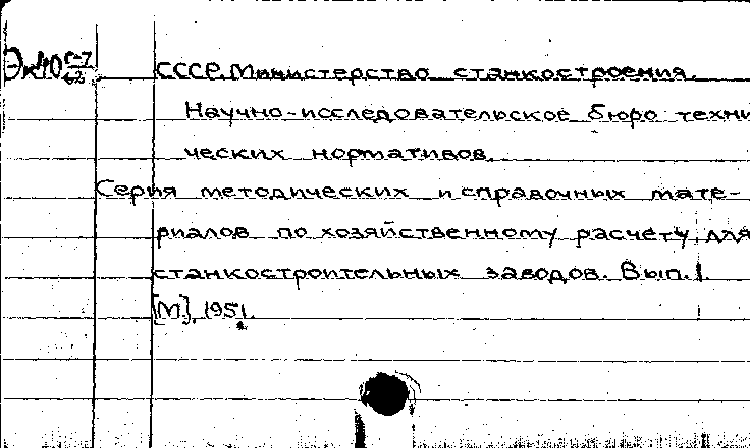 Эк40 с-7/63 СССР. Министерство станкостроения.
Научно-исследовательское бюро техни
ческих нормативов.
Серия методических и справочных мате-
риалов по хозяйственному расчету для
станкостроительных заводов. Вып. 1.
[М], 1951.